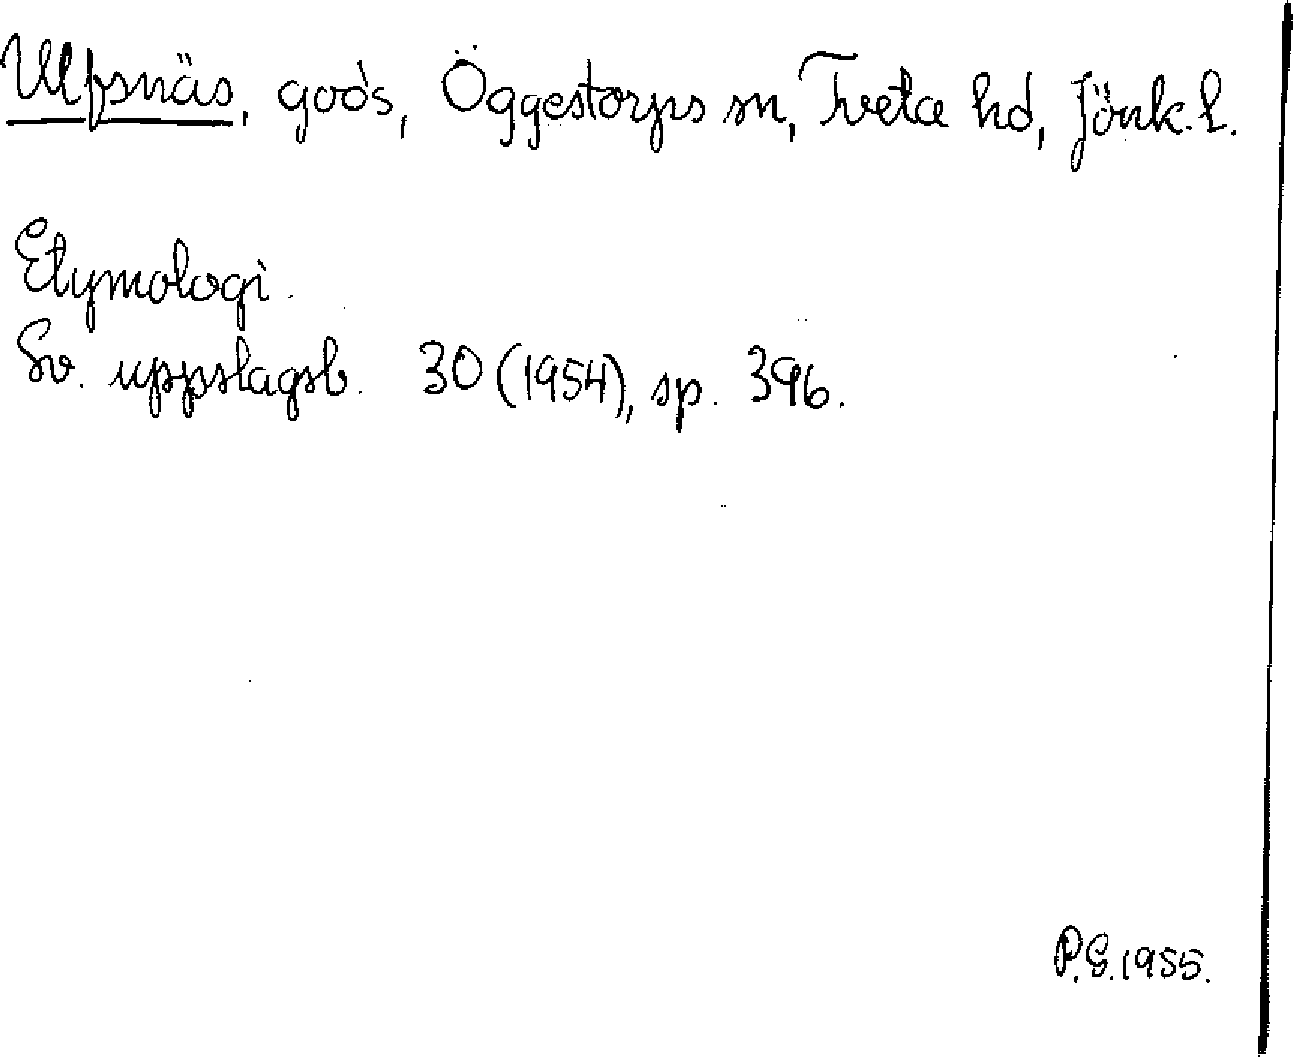 Ulfsnäs, gods, Öggestorps sn, Tveta hd, Jönk. l.
Etymologi.
Sv. uppslagsb. 30 (1954), sp. 396.
P.G. 1955.